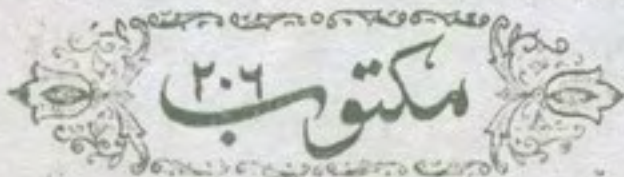 مکتوب ۲۰۶